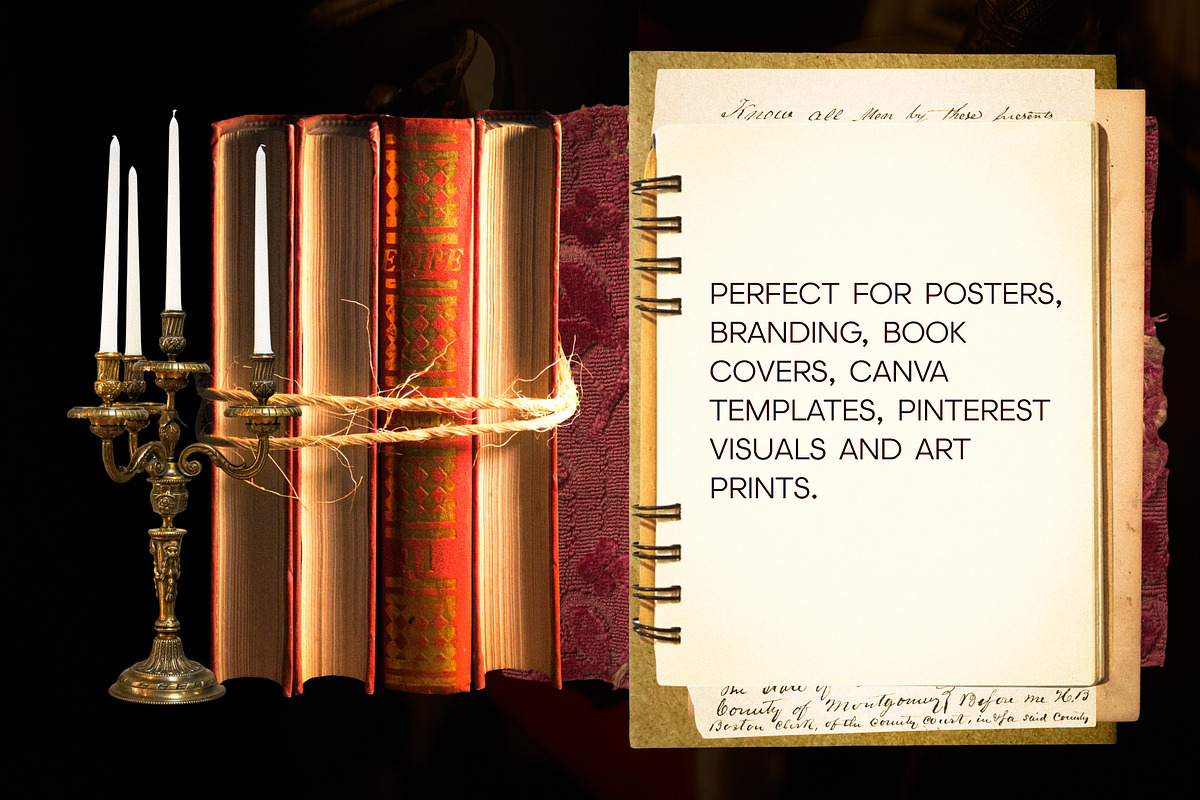 Know all Men by these presents
EDIPE
II
PERFECT FOR POSTERS,
BRANDING, BOOK
COVERS, CANVA
TEMPLATES, PINTEREST
VISUALS AND ART
PRINTS.
The State of
County of Montgomery } Before me H.B
Boston Clerk, of the County Court, in & for said County